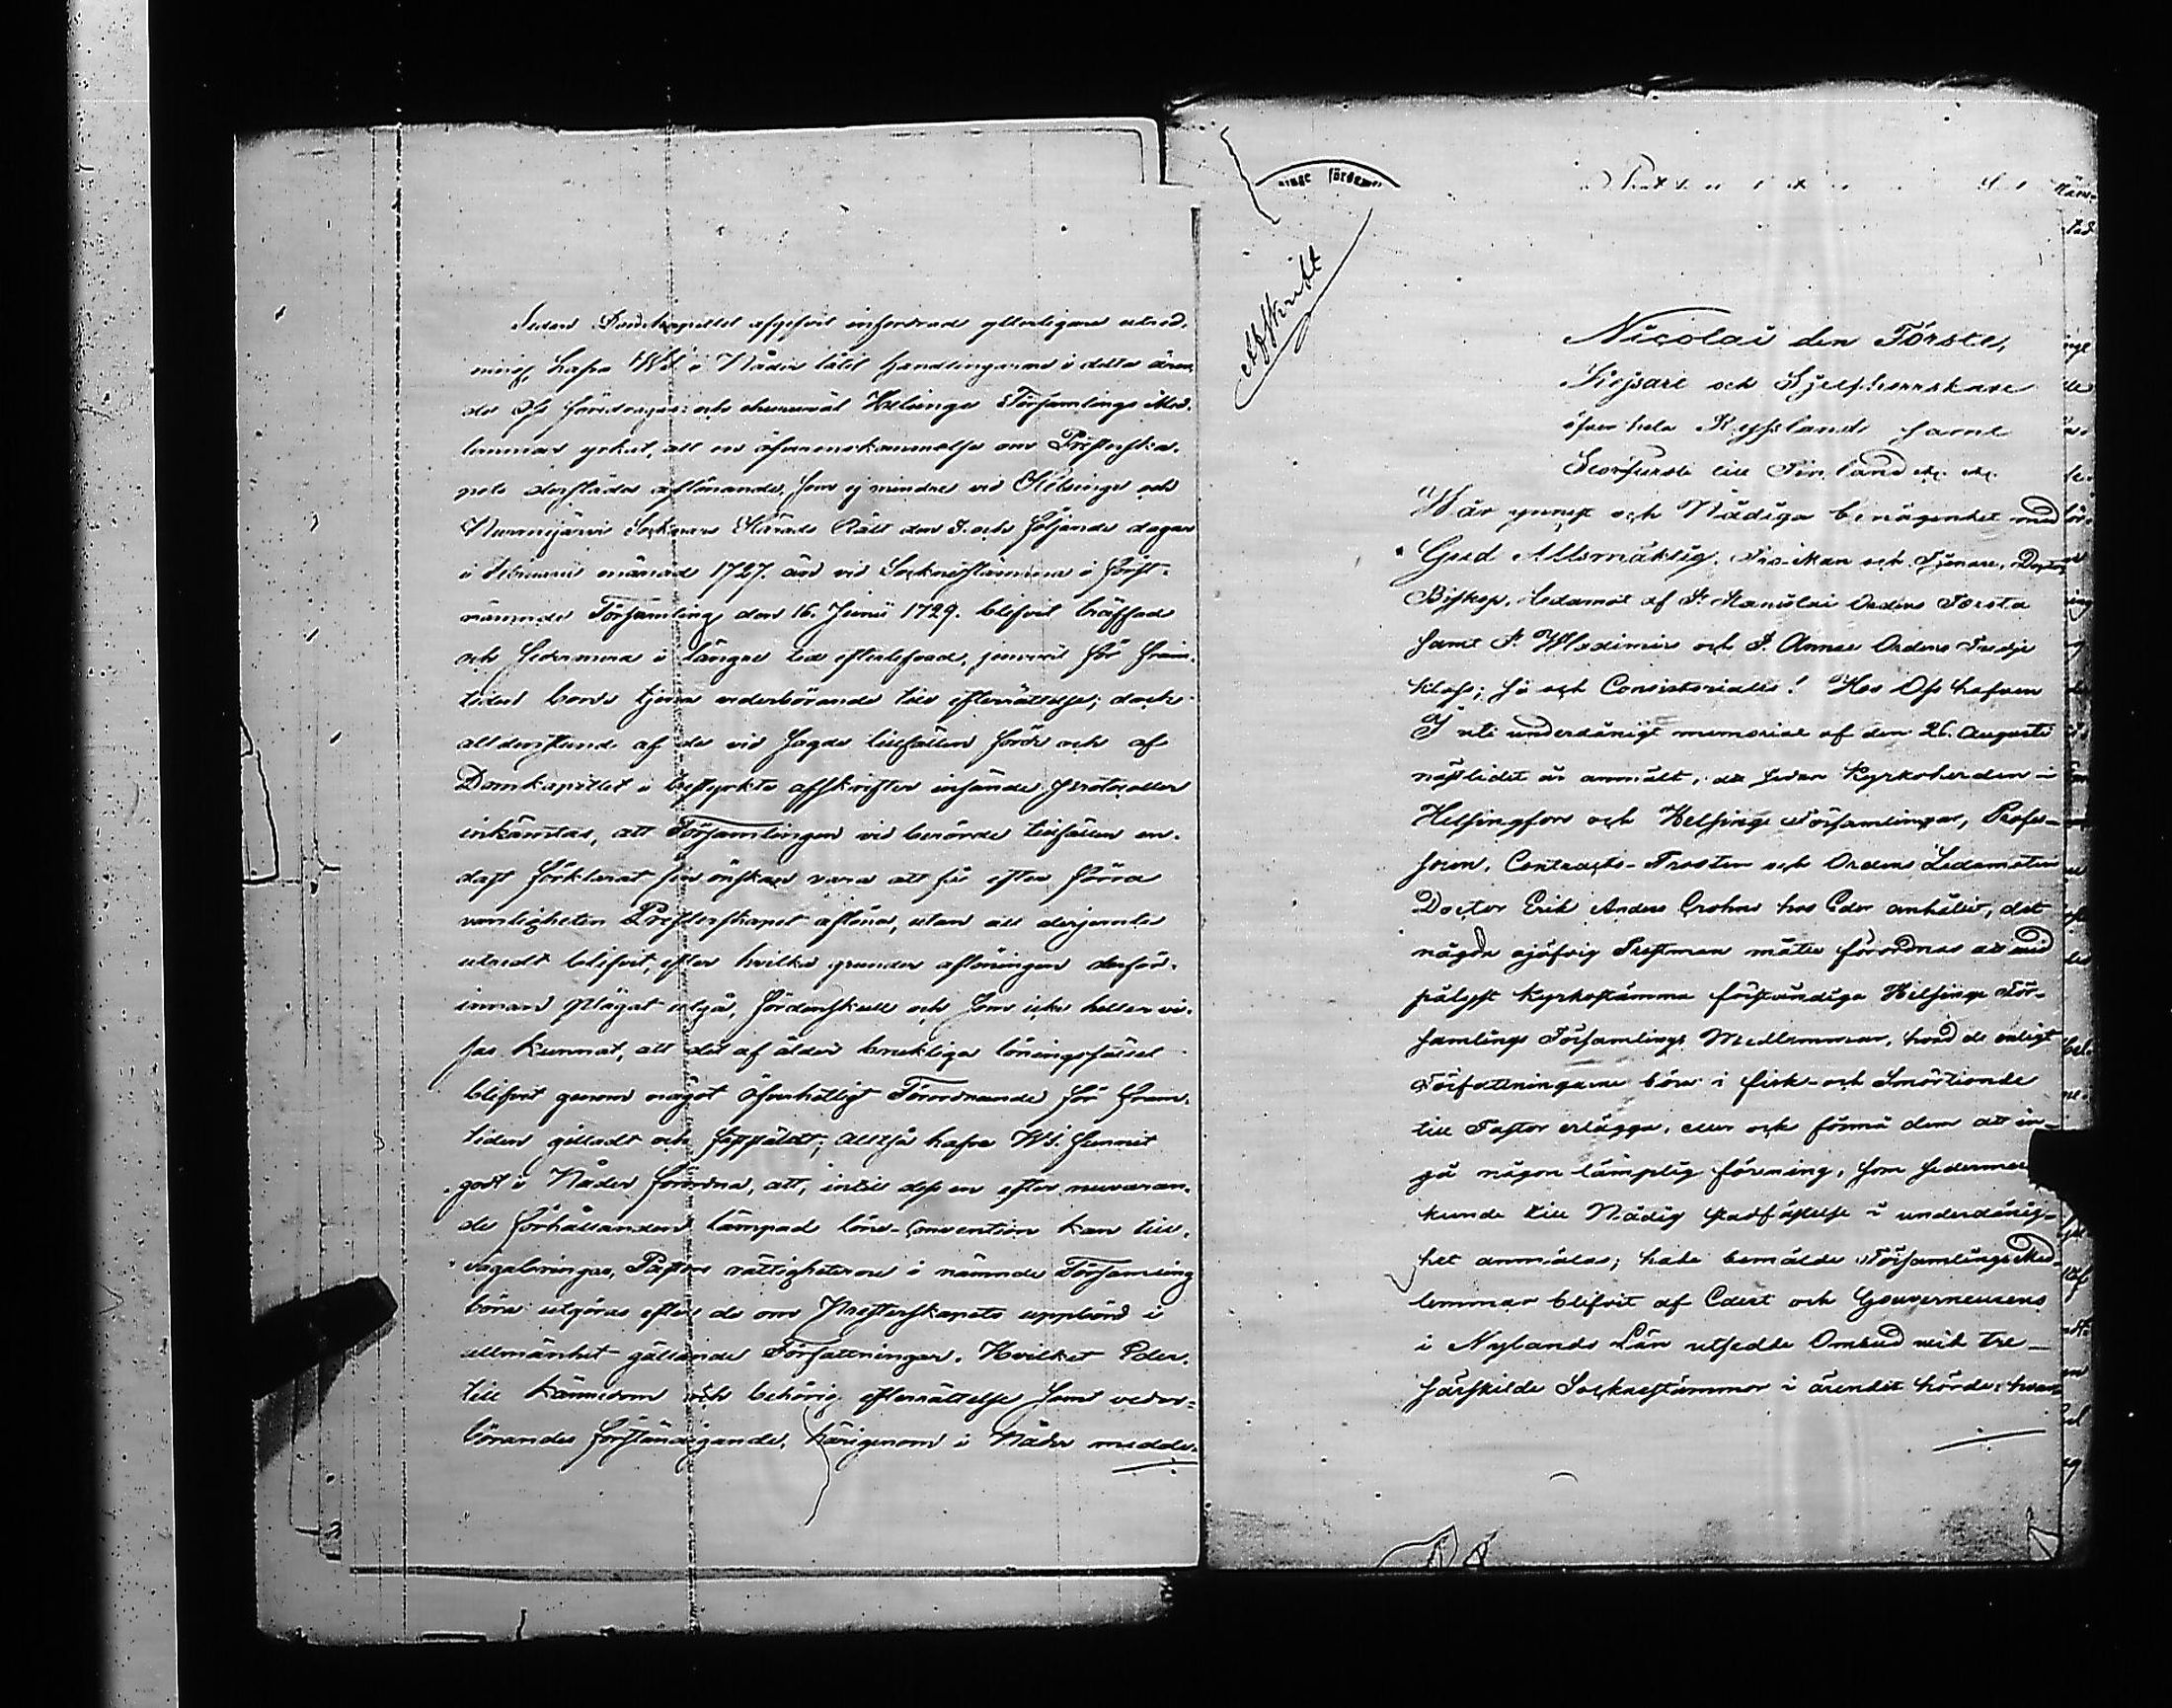 Sedan Domkapitlet afgifvit infordrad ytterligare utred-
ning, hafve Wi i Nåder låtit handlingarne i detta ären-
de Oss föredragas: och ehuruväl Helsinge Församlings Med-
lemmar yrkat, att en öfverenskommelse om Presterska-
pets derstädes aflönande, som ej mindre vid Helsinge och
Nurmijärvi Socknars Härads Rätt den 3. och följande dagar
i Februarii månad 1727. än vid Sockneständmma i först-
nämnde Församling den 16. Junii 1729. blifvit träffad
och sedermera i längre tid efterlefvad, jemväl för fram-
tiden borde tjena vederbörande till efterrättelse; dock
alldenstund af de vid sagde tillfällen förde och af
Domkapitlet i bestyrkte afskrifter insände protocoller
inhämtas, att Församlingen vid berörde tillfällen en-
dast förklarat sin önskan vara att få efter förra
vanligheten Presterskapet aflöna, utan att derjemte
utredt blifvit, efter hvilka grunder aflöningen derför-
innan plägat utgå, förderskull och som icke heller vi-
sas kunnat, att det af ålder brukliga löningssättet
blifvit genom något Öfverhetligt Förordnande för fram-
tiden gilladt och faststäldt; alltså hafve Wi funnit
godt i Nåder förordna, att, intill dess en efter nuvaran-
de förhållanden lämpad löne-Convention kan till-
vägabringas, Pastors rättigheterne i nämnde Församling
böra utgöras efter de om Presterskapets uppbörd i
allmänhet gällande Författningar. Hvilket Eder,
till kännedom och behörig efterrättelse samt veder-
börandes förständigande, härigenom i Nåder medde-
Afskrift
Nicolai den Förste,
Kejsare och Sjelfherrskare
öfver hela Ryssland samt
Storfurste till Finland etc. etc.
Wår ynnest och Nådiga benägenhet med
Gud Allsmäktig. Tro-Man och Tjenare, Doctor
Biskop, Ledamot af St. Stanislai Ordens Första
samt St. Wladimirs och St. Annæ Ordens Tredje
klass; så och Consistoriales! Hos Oss hafven
I uti underdånigt memorial af den 26. Augusti
nästlidet år anmält, att sedan Kyrkoherden i
Helsingfors och Helsinge Församlingar, Profes-
soren, Contracts-Prosten och Ordens Ledamoten
Doctor Erik Anders Crohns hos Eder anhållit, det
någon ojäfvig Prestman måtte förordnas att vid
pålyst kyrkostämma förständiga Helsinge För-
samlings Församlings Medlemmar, hvad de enligt
Författningarne böra i fisk- och Smörtionde
till Pastor erlägga, eller ock förmå dem att in-
gå någon lämplig förening, som sedermer
kunde till Nådig stadfästelse i underdånig-
het anmälas; hade bemälde Församlings Med-
lemmar blifvit af Edert och Gouverneurens
i Nylands Län utsedde Ombud vid tre
särskilde Sockneständmmor i ärendet hörde; hvar